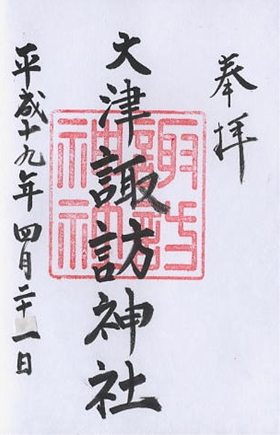 奉拝
大津諏訪神社
諏訪神社
平成十九年四月二十一日